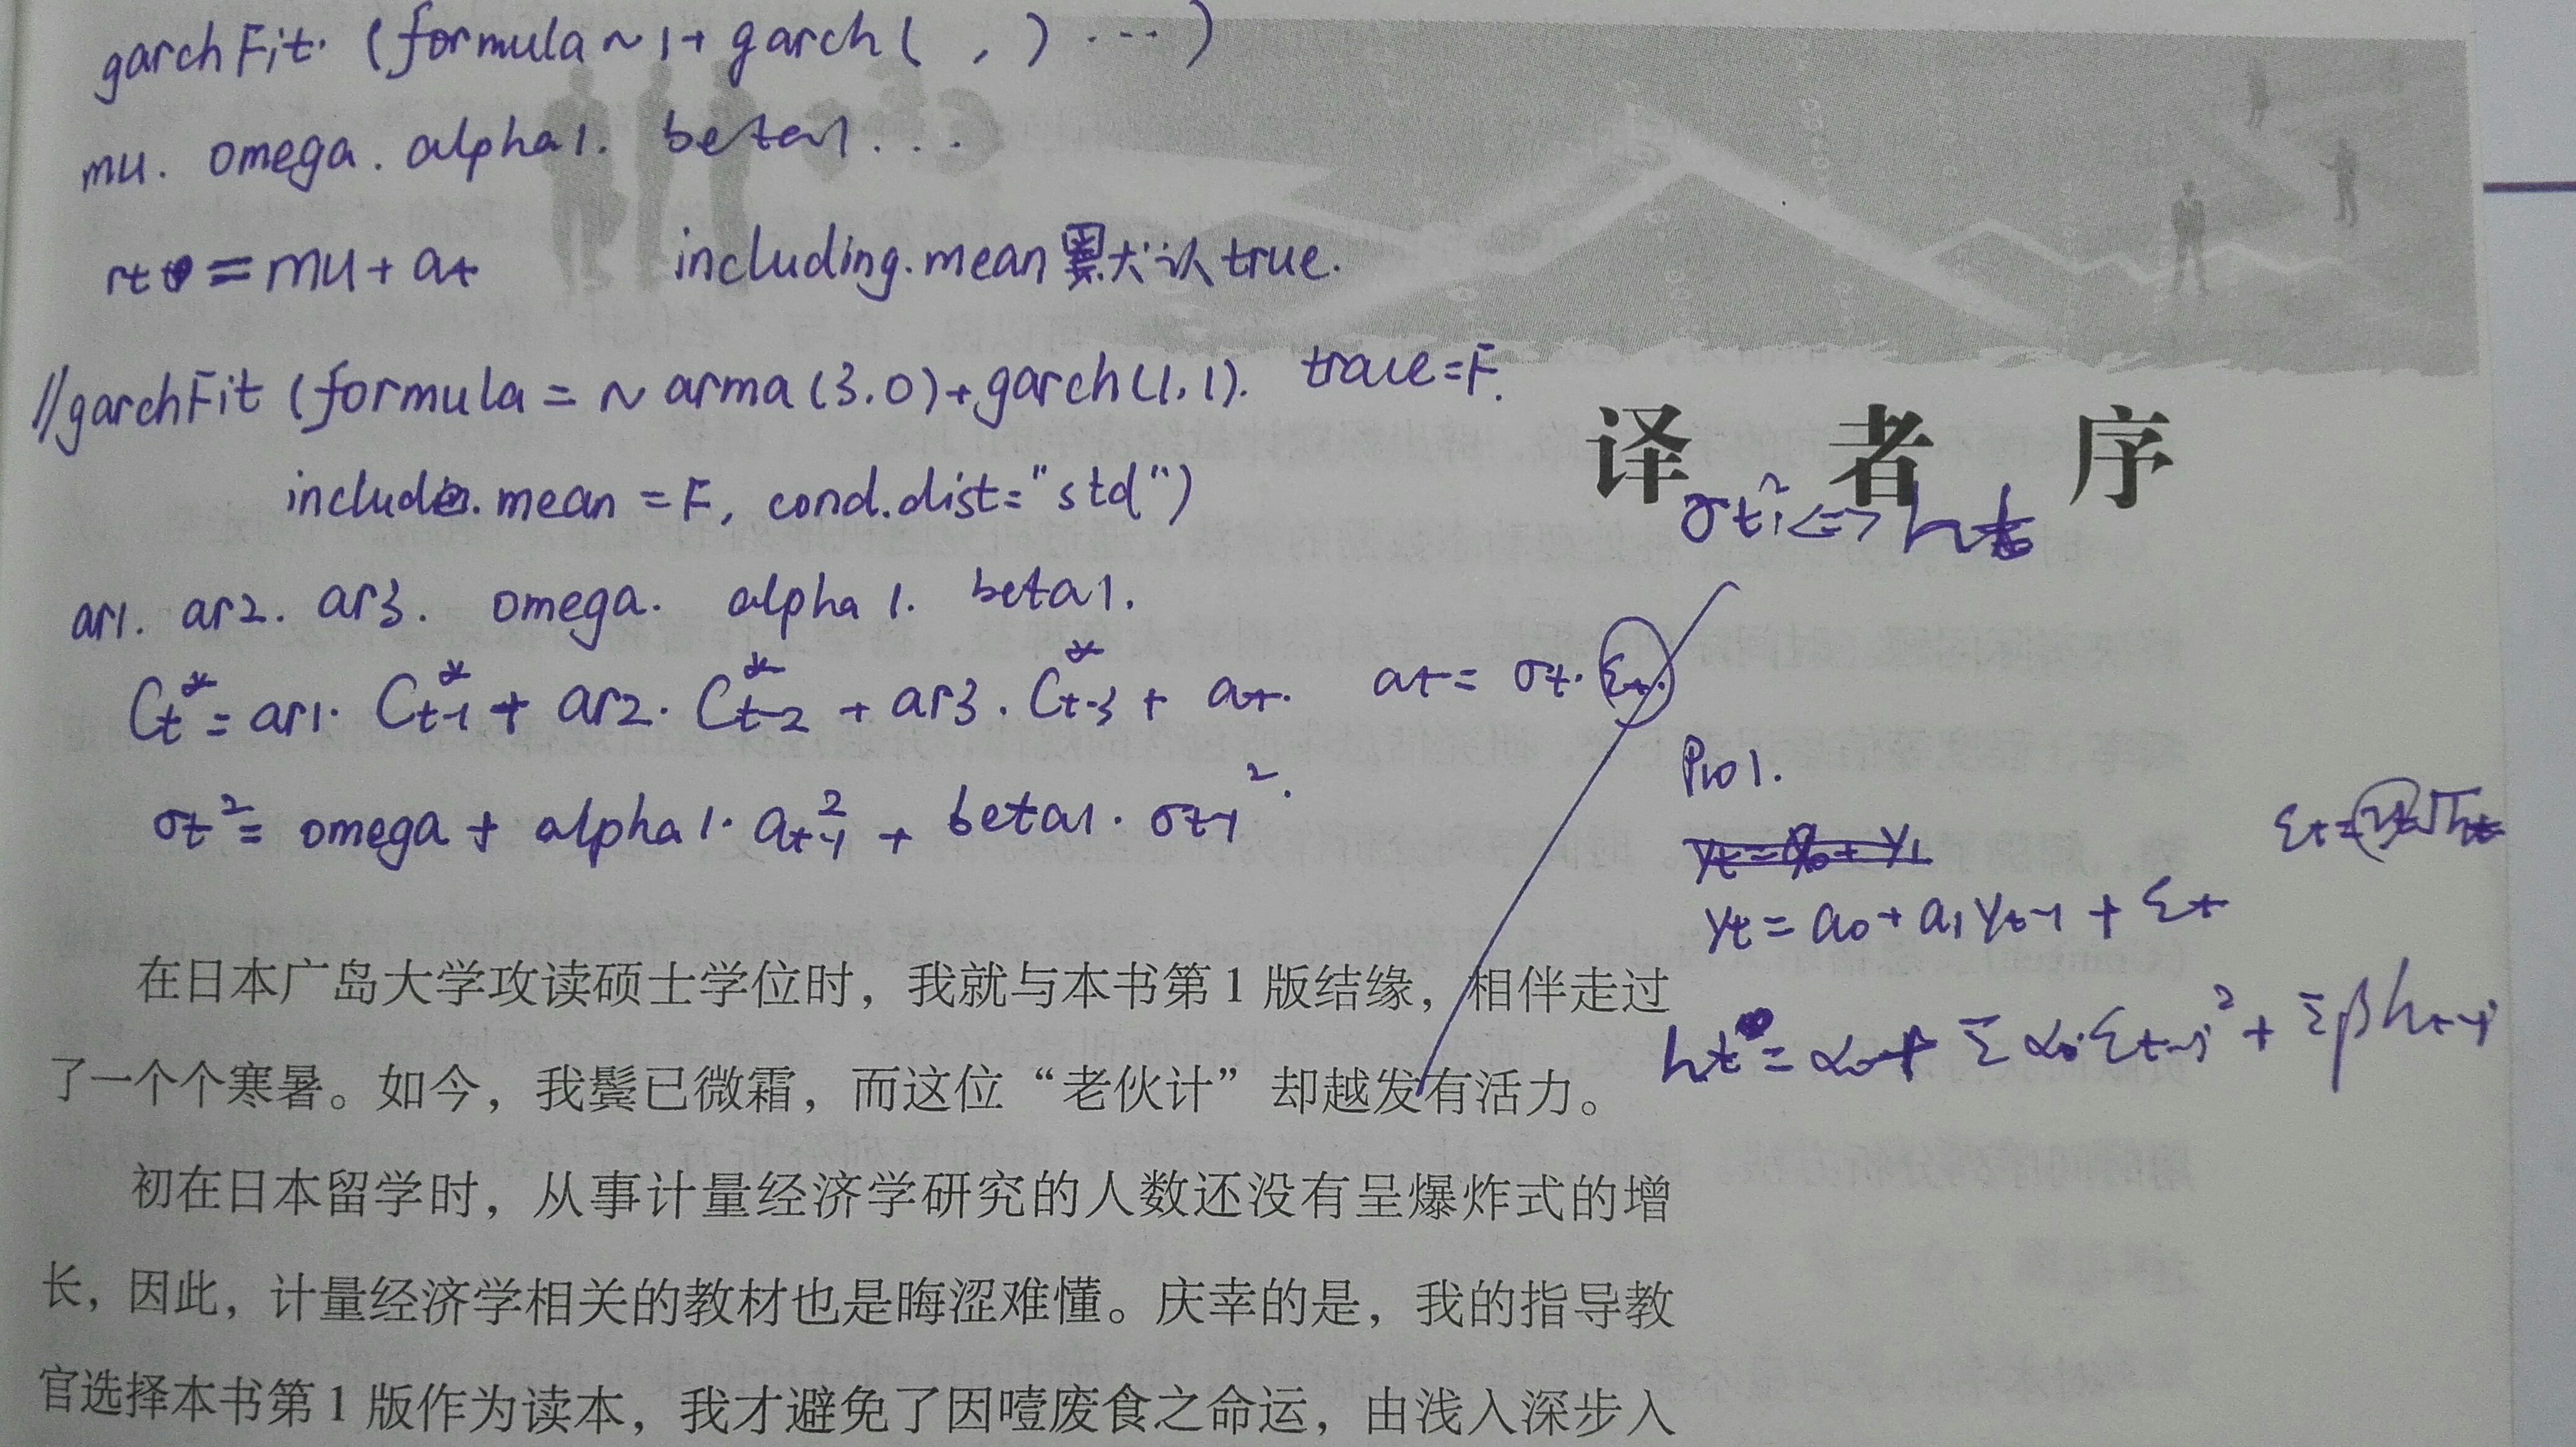 garchFit (formula ~ 1 + garch( , ) ...)
mu. omega. alpha1. beta1...
rt = mu + at including.mean 默认 true.
//garchFit (formula = ~ arma(3.0)+garch(1,1). trace=F.
译者序
include.mean = F, cond.dist="std")
σt² <=> ht
ar1. ar2. ar3. omega. alpha 1. beta1.
Ct* = ar1. Ct-1* + ar2. Ct-2* + ar3. Ct-3* + at. at = σt. εt.
Pro1.
σt² = omega + alpha1. at-1² + beta1. σt-1².
yt = a0 + a1 yt-1 + εt
在日本广岛大学攻读硕士学位时，我就与本书第1版结缘，相伴走过
了一个个寒暑。如今，我鬓已微霜，而这位“老伙计”却越发有活力。
初在日本留学时，从事计量经济学研究的人数还没有呈爆炸式的增
长，因此，计量经济学相关的教材也是晦涩难懂。庆幸的是，我的指导教
官选择本书第1版作为读本，我才避免了因噎废食之命运，由浅入深步入